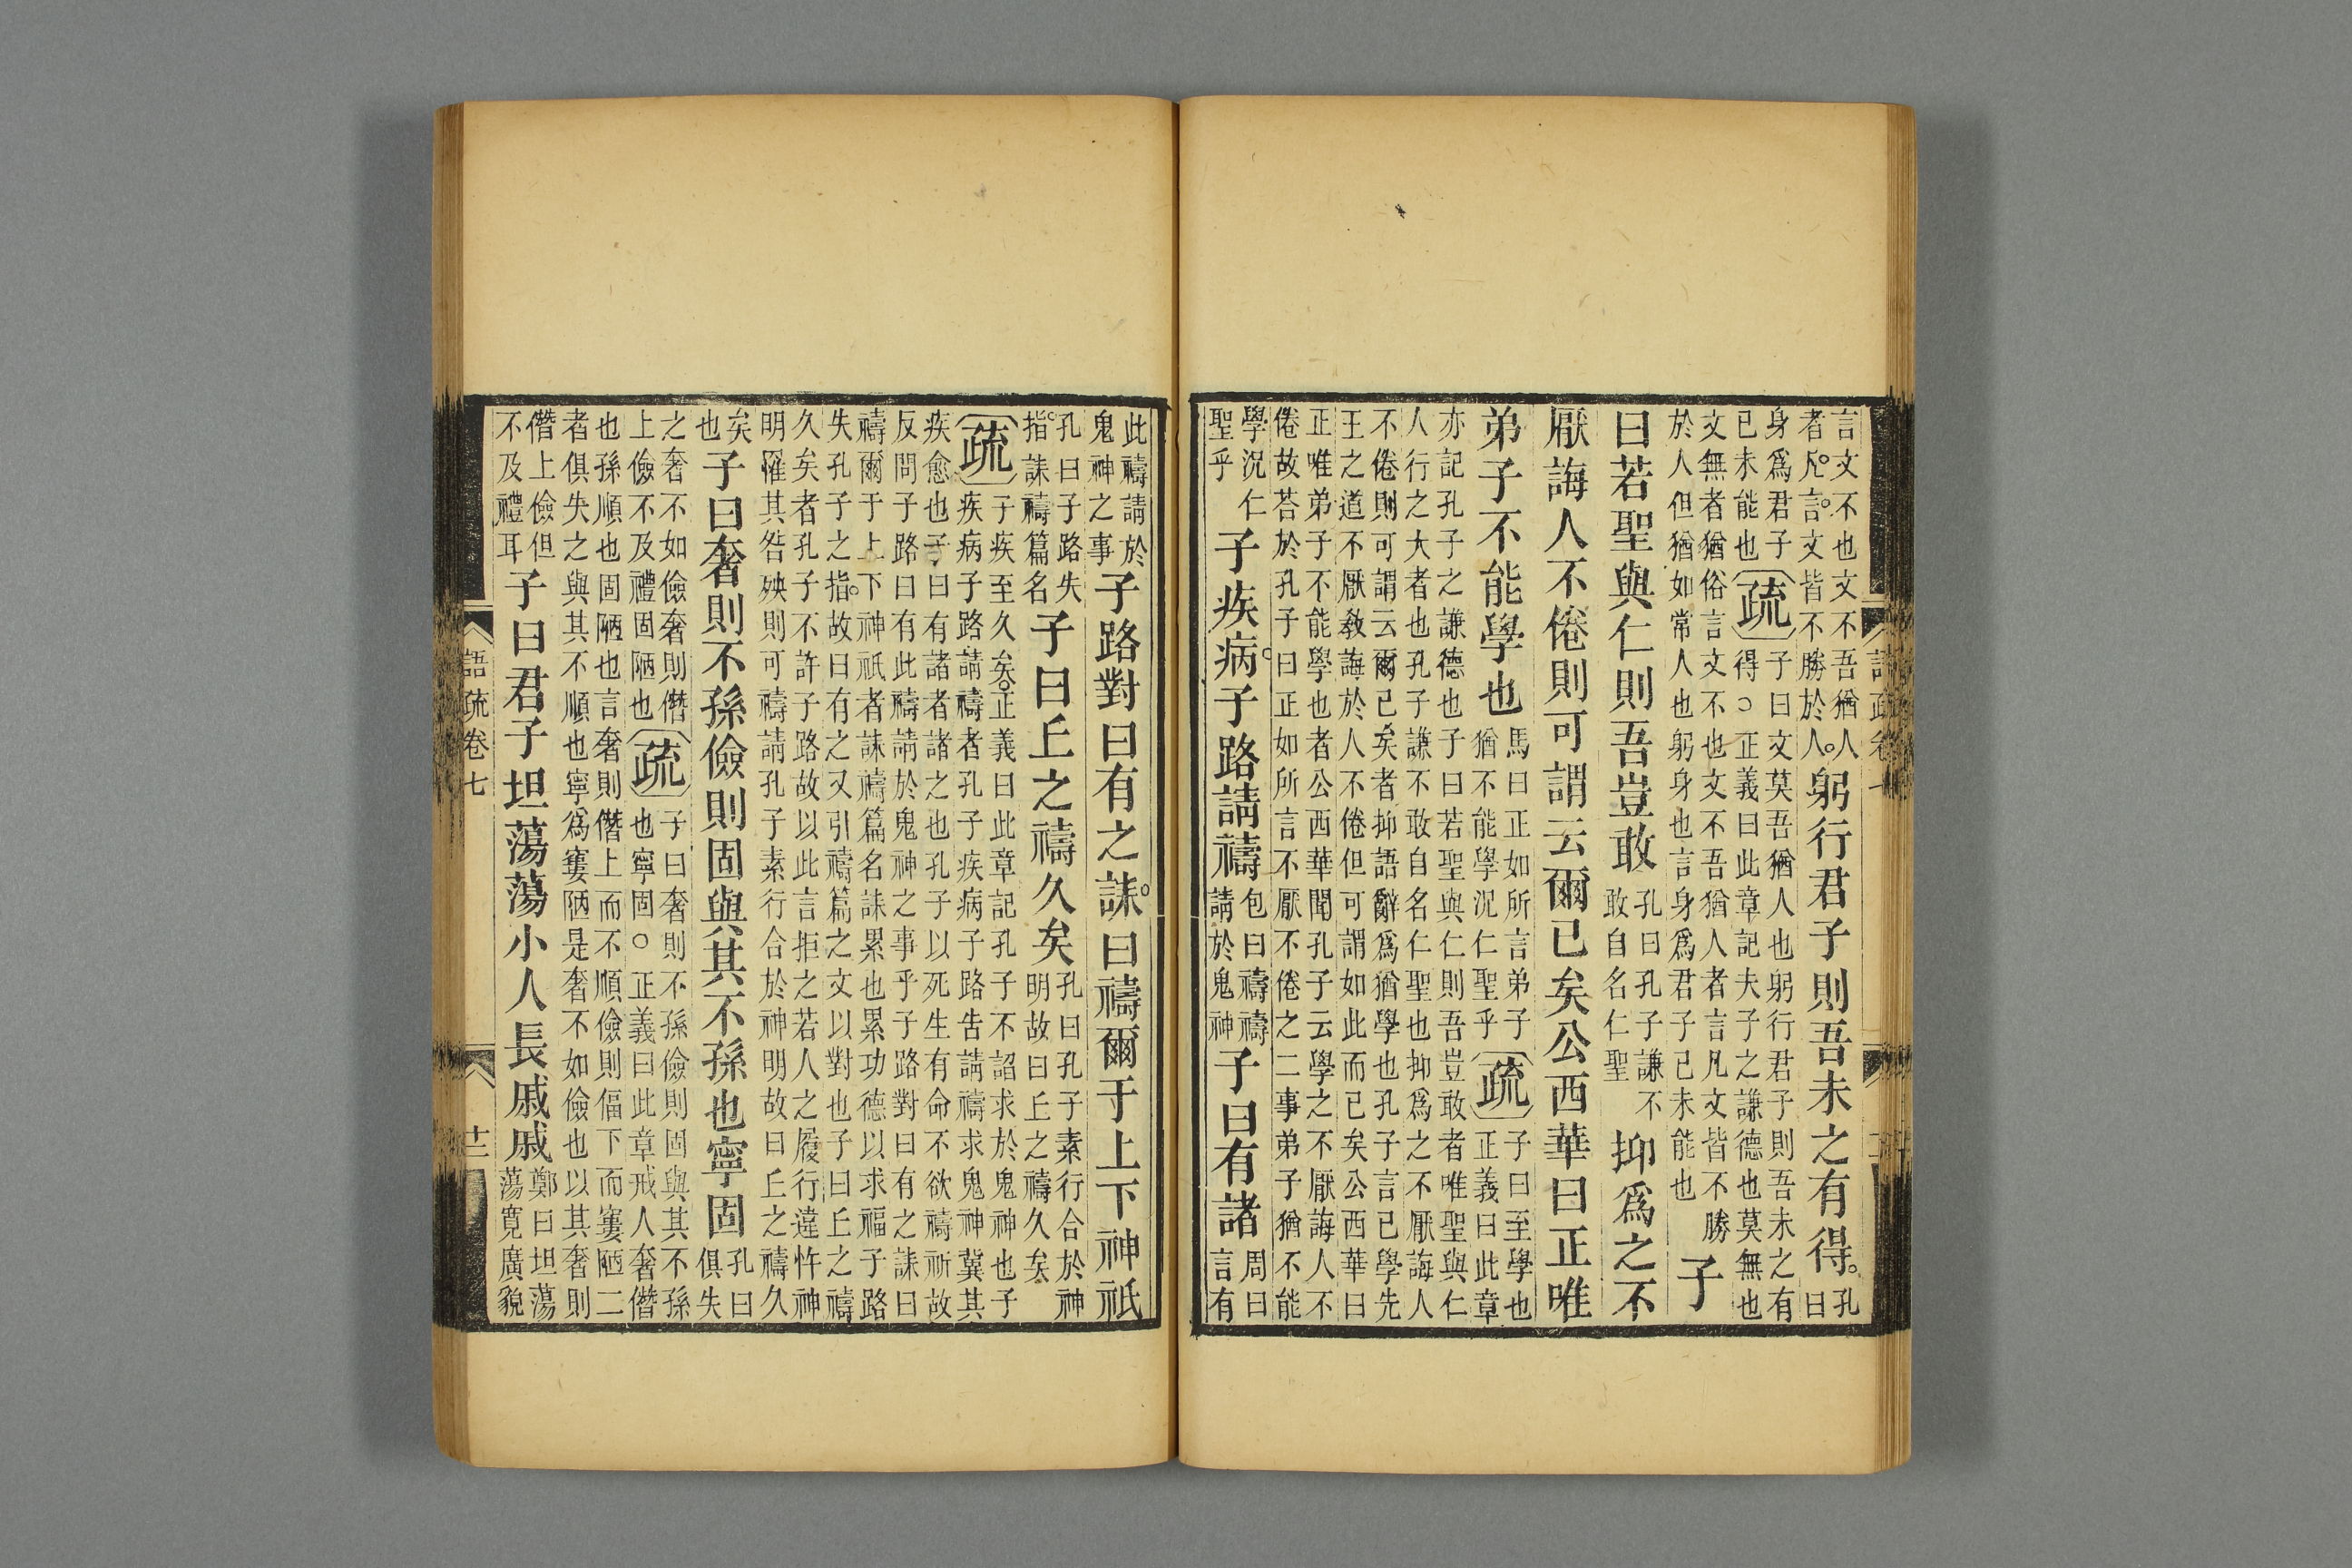 言文不也文不吾猶人
者凡言文皆不勝於人
躬行君子則吾未之有得
孔
曰
身爲君子
已未能也
疏
子曰文莫吾猶人也躬行君子則吾未之有
得○正義曰此章記夫子之謙德也莫無也
文無者猶俗言文不也文不吾猶人者言凡文皆不勝
於人但猶如常人也躬身也言身爲君子己未能也
子
曰若聖與仁則吾豈敢
孔曰孔子謙不
敢自名仁聖
抑爲之不
厭誨人不倦則可謂云爾已矣公西華曰正唯
弟子不能學也
馬曰正如所言弟子
猶不能學況仁聖乎
疏
子曰至學也
正義曰此章
亦記孔子之謙德也子曰若聖與仁則吾豈敢者唯聖與仁
人行之大者也孔子謙不敢自名仁聖也抑爲之不厭誨人
不倦則可謂云爾已矣者抑語辭爲猶學也孔子言己學先
王之道不厭敎誨於人不倦但可謂如此而已矣公西華曰
正唯弟子不能學也者公西華聞孔子云學之不厭誨人不
倦故荅於孔子曰正如所言不厭不倦之二事弟子猶不能
學況仁
聖乎
子疾病子路請禱
包曰禱禱
請於鬼神
子曰有諸
周曰
言有
此禱請於
鬼神之事
子路對曰有之誄曰禱爾于上下神祇
孔曰子路失
指誄禱篇名
子曰丘之禱久矣
孔曰孔子素行合於神
明故曰丘之禱久矣
疏
子疾至久矣正義曰此章記孔子不諂求於鬼神也子
疾病子路請禱者孔子疾病子路告請禱求鬼神冀其
疾愈也子曰有諸者諸之也孔子以死生有命不欲禱祈故
反問子路曰有此禱請於鬼神之事乎子路對曰有之誄曰
禱爾于上下神祇者誄禱篇名誄累也累功德以求福子路
失孔子之指故曰有之又引禱篇之文以對也子曰丘之禱
久矣者孔子不許子路故以此言拒之若人之履行違忤神
明罹其咎殃則可禱請孔子素行合於神明故曰丘之禱久
矣
也
子曰奢則不孫儉則固與其不孫也寧固
孔曰
俱失
之奢不如儉奢則僭
上儉不及禮固陋也
疏
子曰奢則不孫儉則固與其不孫
也寧固○正義曰此章戒人奢僭
也孫順也固陋也言奢則僭上而不順儉則偪下而窶陋二
者俱失之與其不順也寧爲窶陋是奢不如儉也以其奢則
僭上儉但
不及禮耳
子曰君子坦蕩蕩小人長戚戚
鄭曰坦蕩
蕩寬廣貌
語疏卷七
十二